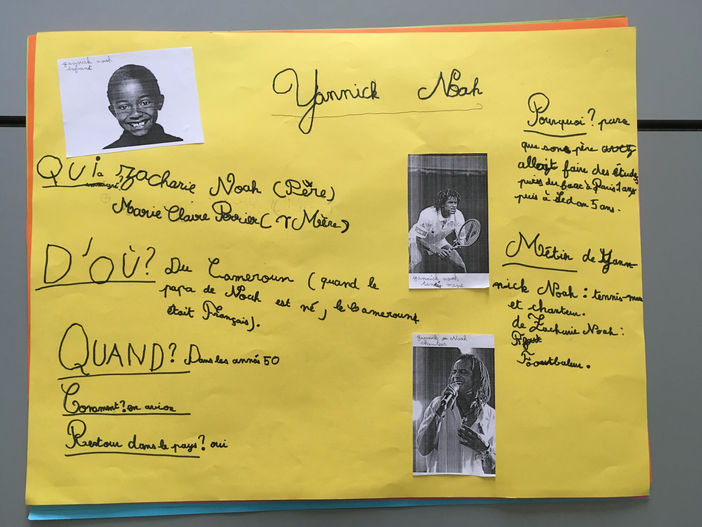 Yannick Noah
yannick noah
enfant
QUI a
émmigré? Zacharie Noah (Père)
Marie Claire Perrier (Mère)
D'OÙ? Du Cameroun (quand le
papa de Noah est né, le Cameroun
était Français).
QUAND? Dans les années 50
Comment? en avion
Retour dans le pays? oui
yannick noah
tennis man
yannick Noah
chanteur
Pourquoi? parce
que son père
allait faire des études
à Paris 1 ans
puis à Sedan 5 ans.
Métier de Yann-
nick Noah: tennis-man
et chanteur.
de Zacharie Noah:
Footballeur.